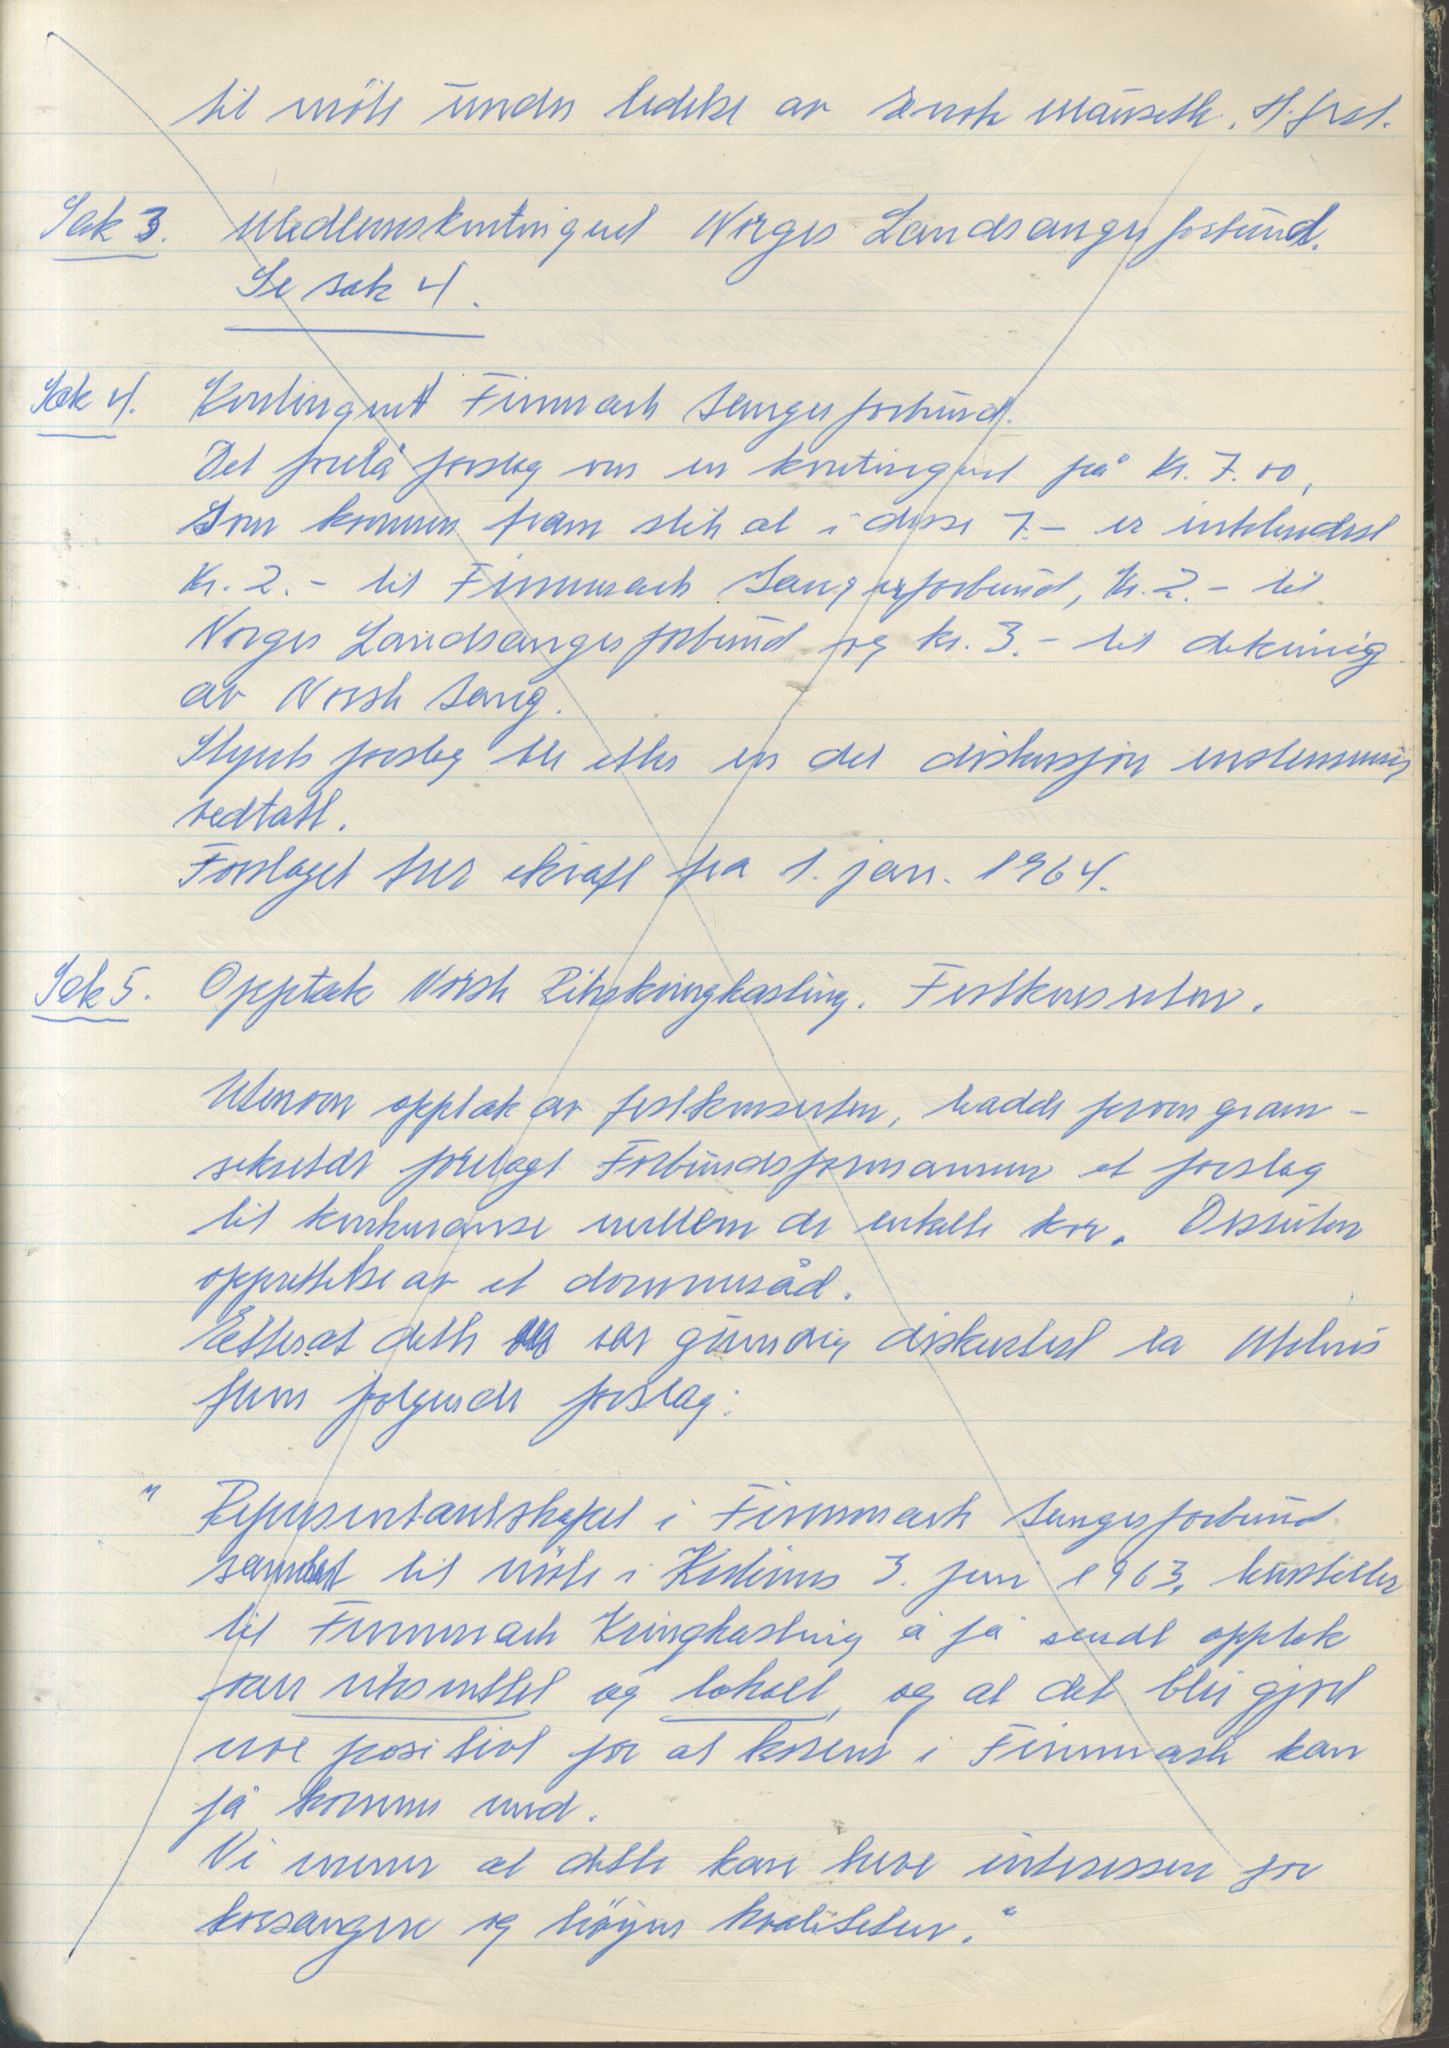 til möte under ledelse av Mauseth, H.fest.
Sak 3. Medlemskontingent Norges Landsangerforbund.
Se sak 4.
Sak 4. Kontingent Finnmark Sangerforbund.
Det forelå forslag om en kontingent på kr. 7.00,
Som kommer fram slik at i disse 7.- er inkludert
Kr. 2.- til Finnmark Sangerforbund, Kr. 2.- til
Norges Landsangerforbund og kr. 3.- til dekning
av Norsk Sang.
Styrets forslag ble etter en del diskusjon enstemmig
vedtatt.
Forslaget trer ikraft fra 1. jan. 1964.
Sak 5. Opptak Norsk Rikskringkasting. Festkonserten.
Utenom opptak av festkonserten, hadde program-
sekretær forelagt Forbundsformannen et forslag
til konkuranse mellom de enkelte kor. Dessuten
opprettelse av et dommeråd.
Etterat dette var grundig diskutert la Melnis
frem følgende forslag:
" Representantskapet i Finnmark Sangerforbund
samlet til möte i 3. juni 1963, henstiller
til Finnmark Kringkasting å få sendt opptak
over riksnettet og lokalt, og at det blir gjort
noe positivt for at korene i Finnmark kan
få komme med.
Vi mener at dette kan heve interessen for
korsangen og höyne kvaliteten."